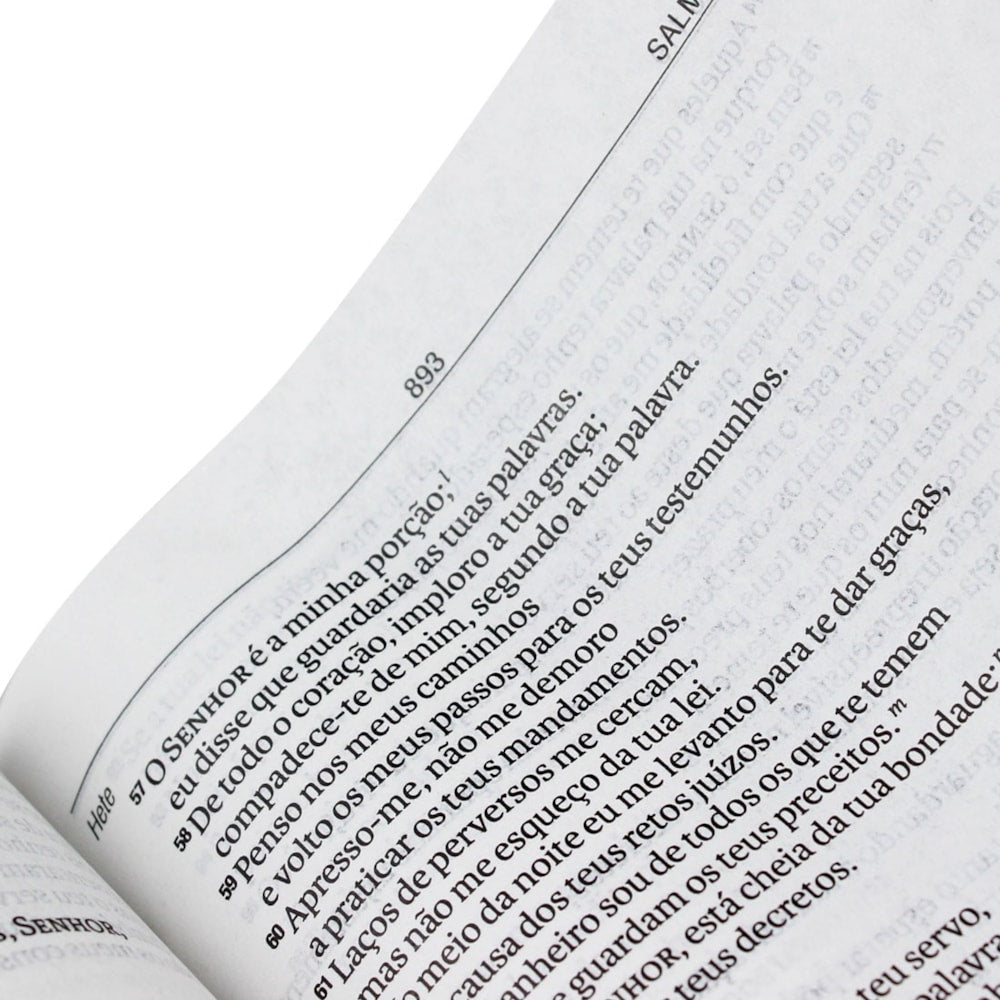 893
SALM
Hete
57 O SENHOR é a minha porção;l
eu disse que guardaria as tuas palavras.
58 De todo o coração, imploro a tua graça;
compadece-te de mim, segundo a tua palavra.
59 Penso nos meus caminhos
e volto os meus passos para os teus testemunhos.
60 Apresso-me, não me demoro
a praticar os teus mandamentos.
61 Laços de perversos me cercam,
mas não me esqueço da tua lei.
meio da noite eu me levanto para te dar graças,
causa dos teus retos juízos.
anheiro sou de todos os que te temem
guardam os teus preceitos. m
HOR, está cheia da tua bondade;
teus decretos.
teu servo,
palavra
, SENHOR,